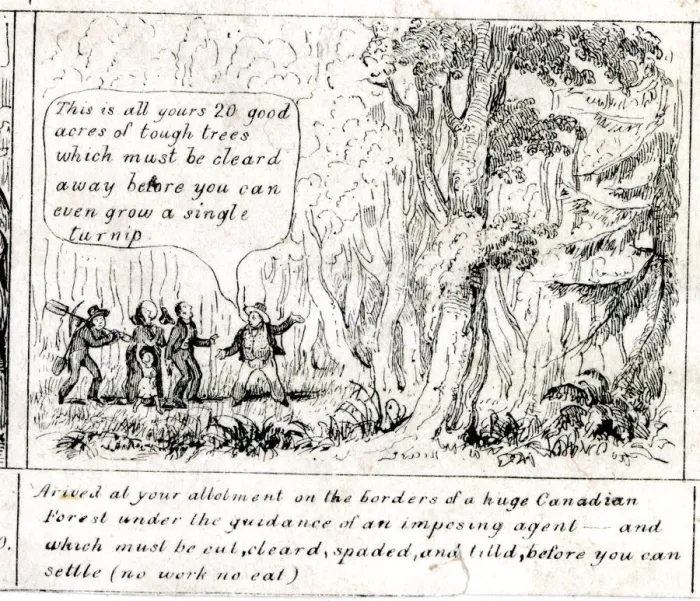 This is all yours 20 good
acres of tough trees
which must be cleard
away before you can
even grow a single
turnip
Arived at your allotment on the borders of a huge Canadian
Forest under the guidance of an imposing agent — and
which must be cut, cleard, spaded, and tilld, before you can
settle (no work no eat)